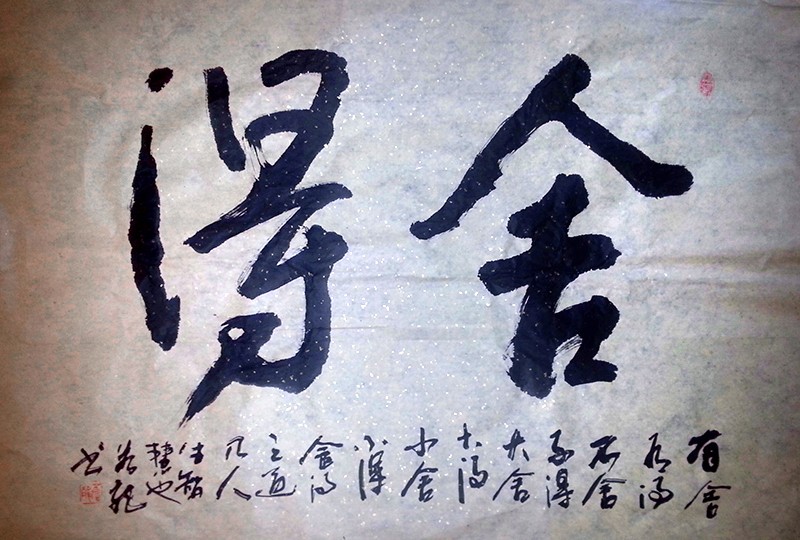 舍得
有舍
有得
不舍
不得
大舍
大得
小舍
小得
舍得
之道
凡人
生智
慧也
龍
书